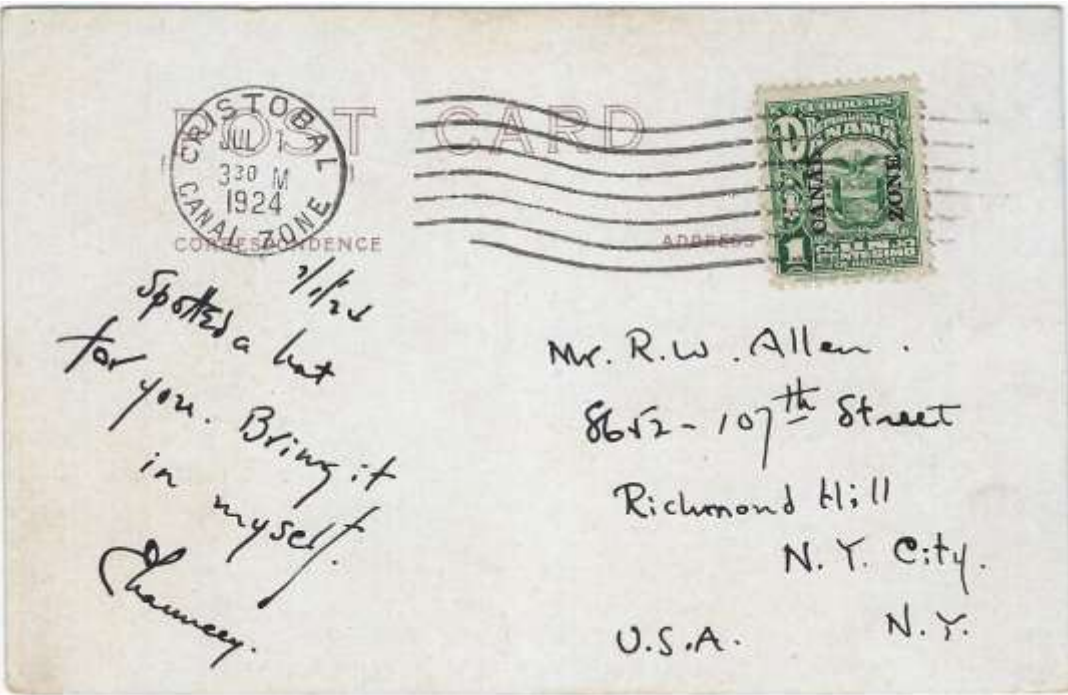 POST CARD
CRISTOBAL
JUL 1
330 M
1924
CANAL ZONE
CORRESPONDENCE
ADDRESS
PANAMA
CANAL ZONE
1
7/1/24
Spotted a hat
for you. Bring it
in myself.
Chauncey.
Mr. R.W. Allen.
8652-107th Street
Richmond Hill
N.Y. City.
N.Y.
U.S.A.